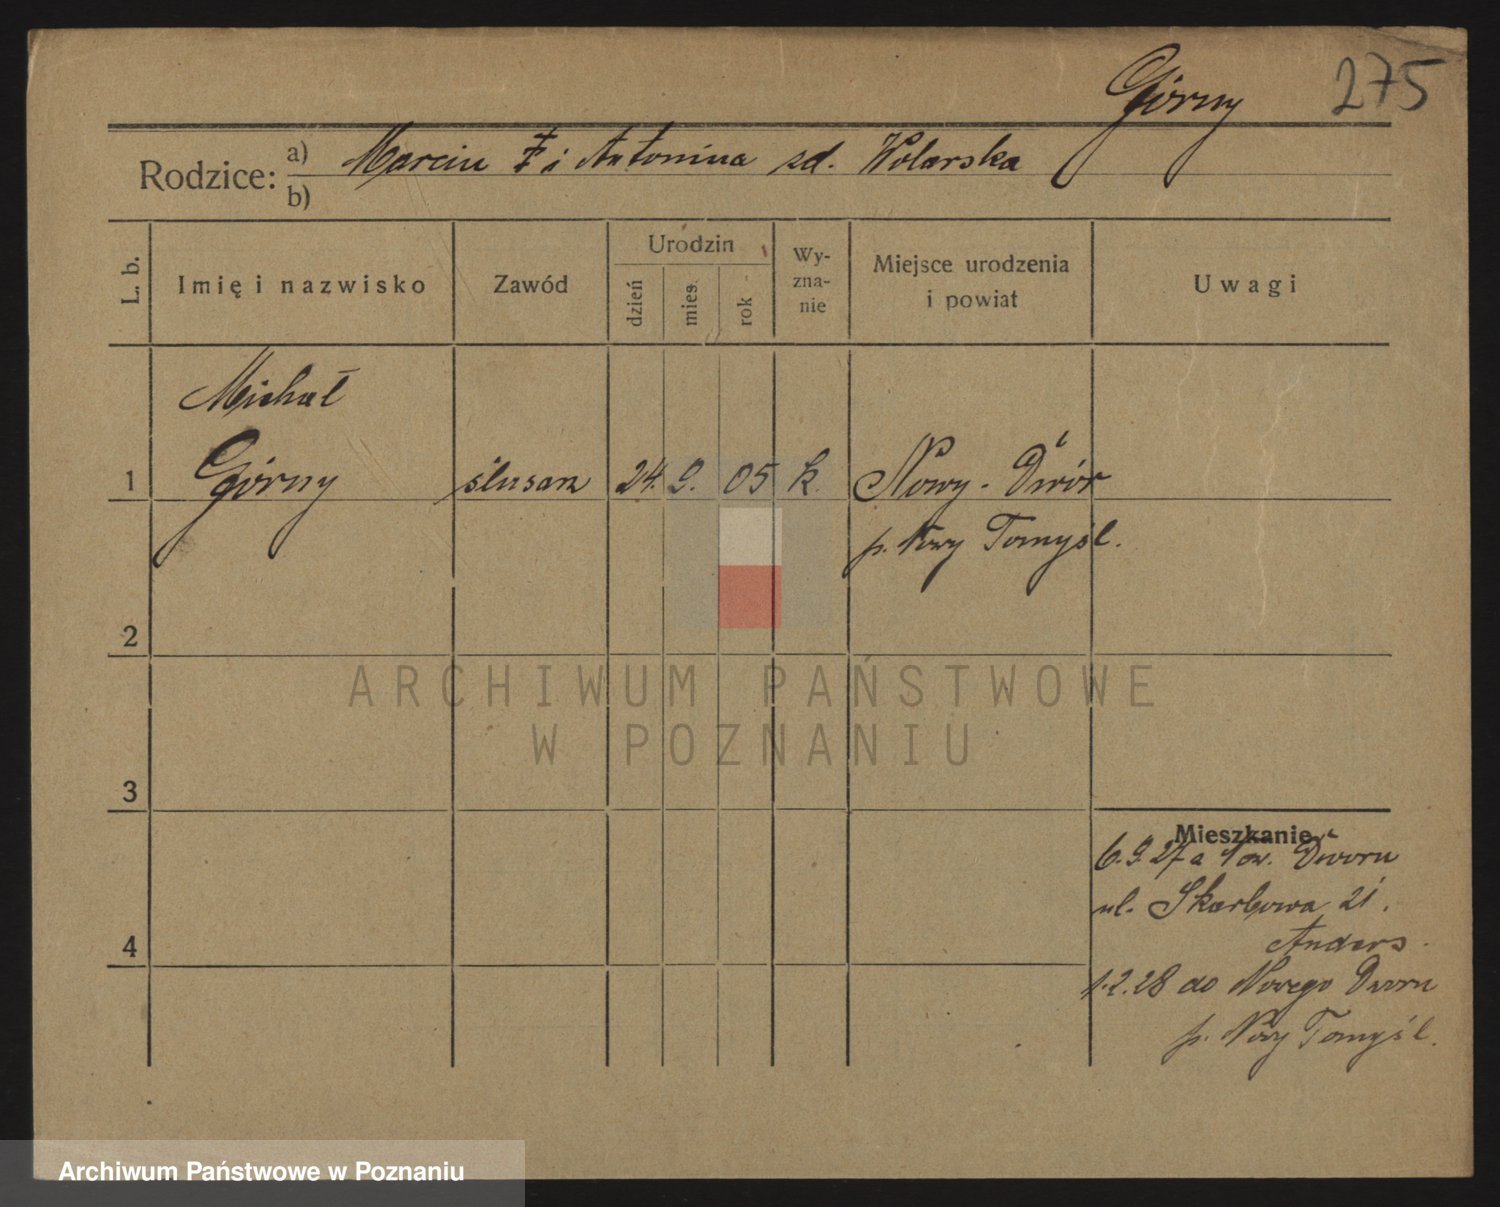 Górny 275
Rodzice: a) Marcin ‡ i Antonina zd. Wolarska
b)
L. b. Imię i nazwisko Zawód Urodzin dzień mies. rok Wyznanie Miejsce urodzenia i powiat Uwagi
Michał
1 Górny ślusarz 24. 9. 05 k. Nowy-Dwór
p. Nowy Tomyśl.
2
ARCHIWUM PAŃSTWOWE
W POZNANIU
3
Mieszkanie
6.9.27 a Now. Dworu
ul. Skarbowa 21.
Anders.
4
1.2.28 do Nowego Dworu
p. Nowy Tomyśl.
Archiwum Państwowe w Poznaniu